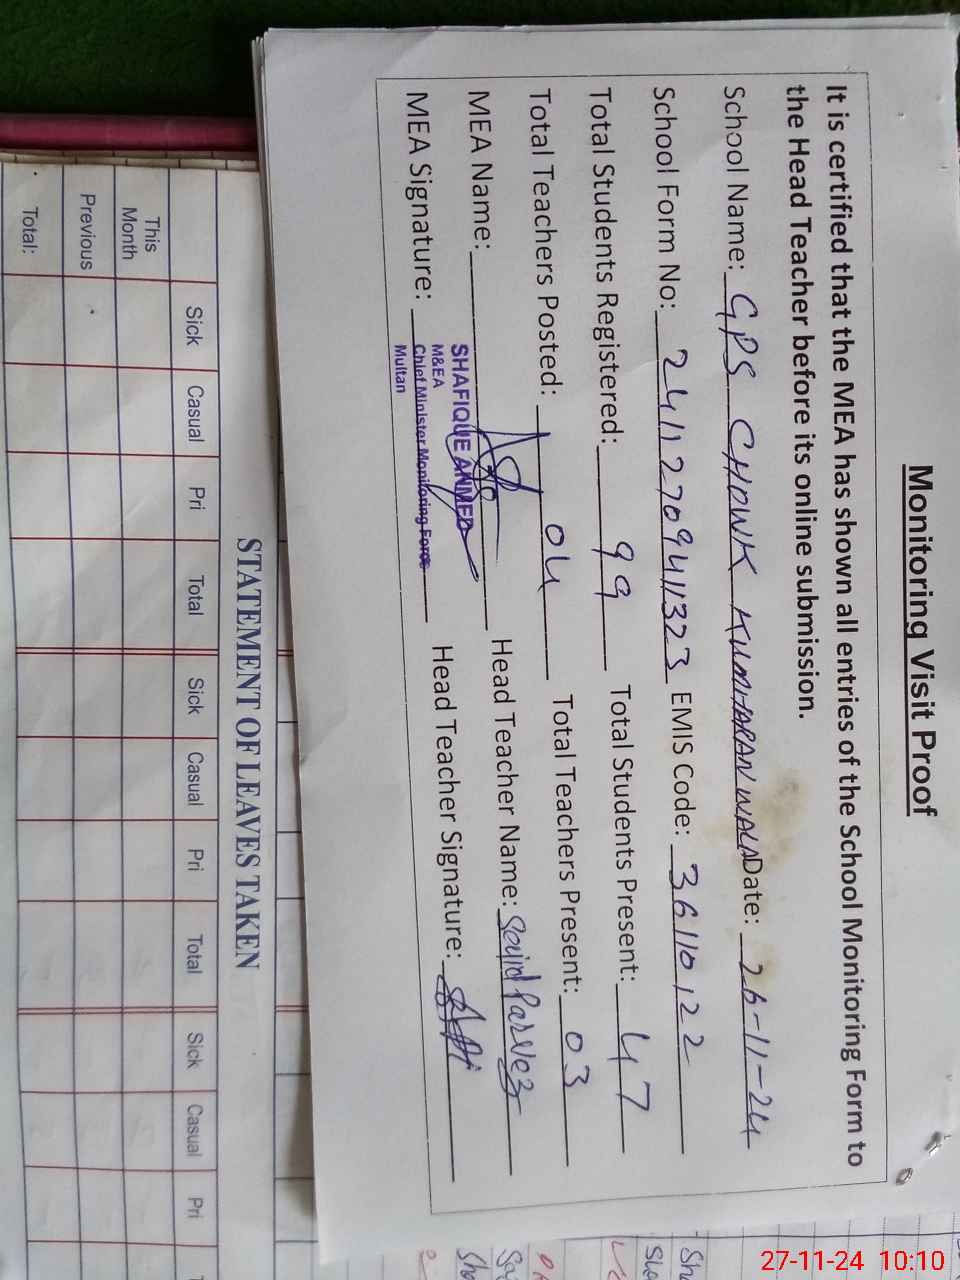 Monitoring Visit Proof
It is certified that the MEA has shown all entries of the School Monitoring Form to
the Head Teacher before its online submission.
School Name: GPS CHOWK KUMHARAN WALA Date: 26-11-24
School Form No: 2411270941323 EMIS Code: 36110122
Total Students Registered: 99 Total Students Present: 47
Total Teachers Posted: 04 Total Teachers Present: 03
MEA Name: Head Teacher Name: Sajid Parvez
MEA Signature: Head Teacher Signature:
SHAFIQUE AHMED
M&EA
Chief Minister Monitoring Force
Multan
STATEMENT OF LEAVES TAKEN
Sick Casual Pri Total Sick Casual Pri Total Sick Casual Pri
This
Month
Previous
Total:
27-11-24 10:10